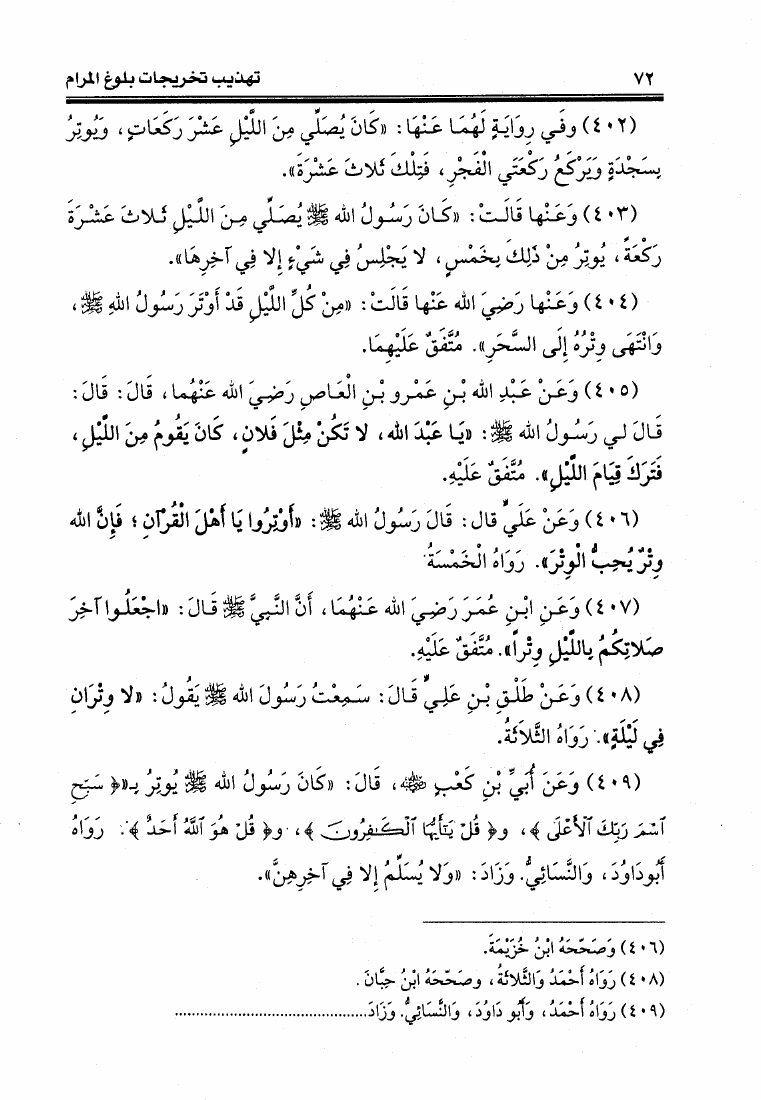 ٧٢ تهذيب تخريجات بلوغ المرام
(٤٠٢) وفَي رِوَايَةٍ لَهُمَا عَنْهَا: «كَانَ يُصَلِّي مِنَ اللَّيْلِ عَشْرَ رَكَعَاتٍ، وَيُوتِرُ
بِسَجْدَةٍ وَيَرْكَعُ رَكْعَتَي الْفَجْرِ، فَتِلْكَ ثَلاثَ عَشْرَةَ».
(٤٠٣) وَعَنْها قَالَتْ: «كَانَ رَسُولُ الله ﷺ يُصَلِّي مِنَ اللَّيْلِ ثَلاثَ عَشْرَةَ
رَكْعَةً، يُوتِرُ مِنْ ذَلِكَ بِخَمْسٍ، لا يَجْلِسُ فِي شَيْءٍ إلا فِي آخِرِهَا».
(٤٠٤) وَعَنْها رَضِيَ الله عَنْها قَالَتْ: «مِنْ كُلِّ اللَّيْلِ قَدْ أَوْتَرَ رَسُولُ اللهِ ﷺ،
وَانْتَهَى وِتْرُهُ إِلَى السَّحَرِ». مُتَّفَقٌ عَلَيْهِمَا.
(٤٠٥) وَعَنْ عَبْدِ الله بْنِ عَمْرِو بْنِ الْعَاصِ رَضِيَ الله عَنْهُما، قَالَ: قَالَ:
قَالَ لي رَسُولُ الله ﷺ: «يَا عَبْدَ الله، لا تَكُنْ مِثْلَ فَلانٍ، كَانَ يَقُومُ مِنَ اللَّيْلِ،
فَتَرَكَ قِيَامَ اللَّيْلِ». مُتَّفَقٌ عَلَيْهِ.
(٤٠٦) وَعَنْ عَلَيٌّ قال: قَالَ رَسُولُ الله ﷺ: «أَوْتِرُوا يَا أَهْلَ الْقُرْآنِ؛ فَإِنَّ الله
وِتْرٌ يُحِبُّ الْوِتْرَ». رَوَاهُ الْخَمْسَةُ
(٤٠٧) وَعَنِ ابْنِ عُمَرَ رَضِيَ الله عَنْهُمَا، أَنَّ النَّبِيَّ ﷺ قَالَ: «اجْعَلُوا آخِرَ
صَلاتِكُمْ بِاللَّيْلِ وِتْراً». مُتَّفَقٌ عَلَيْهِ.
(٤٠٨) وَعَنْ طَلْقِ بْنِ عَلِيٌّ قَالَ: سَمِعْتُ رَسُولَ الله ﷺ يَقُولُ: «لا وِتْرَانِ
فِي لَيْلَةٍ». رَوَاهُ الثَّلاثَةُ.
(٤٠٩) وَعَنَ أُبَيِّ بْنِ كَعْبٍ ﷺ، قَالَ: «كَانَ رَسُولُ الله ﷺ يُوتِرُ بِـ«﴿ سَبِّحِ
ٱسْمَ رَبِّكَ ٱلْأَعْلَى ﴾، و﴿ قُلْ يَٰٓأَيُّهَا ٱلْكَٰفِرُونَ ﴾، و﴿ قُلْ هُوَ ٱللَّهُ أَحَدٌ ﴾. رَوَاهُ
أَبُودَاوُدَ، وَالنَّسَائِيُّ. وَزَادَ: «وَلا يُسَلِّمُ إلا فِي آخِرِهِنَّ».
(٤٠٦) وَصَحّحَهُ ابْنُ خُزَيْمَةَ.
(٤٠٨) رَوَاهُ أَحْمَدُ وَالثَّلاثَةُ، وصَحّحَهُ ابْنُ حِبَّانَ.
(٤٠٩) رَوَاهُ أَحْمَدُ، وَأَبُو دَاوُدَ، وَالنَّسَائِيُّ. وَزَادَ.............................................